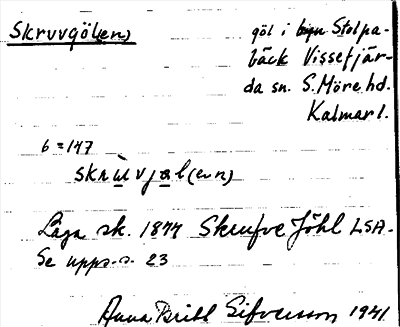 Skruvgöl(en)
göl i byn Stolpa-
bäck Vissefjär-
da sn. S. Möre hd.
Kalmar l.
6 = 147
skrùvjøl(ən)
Laga sk. 1877 Skrufve Jöhl LSA.
Se upps. s. 23
Anna Britt Sifversson 1941